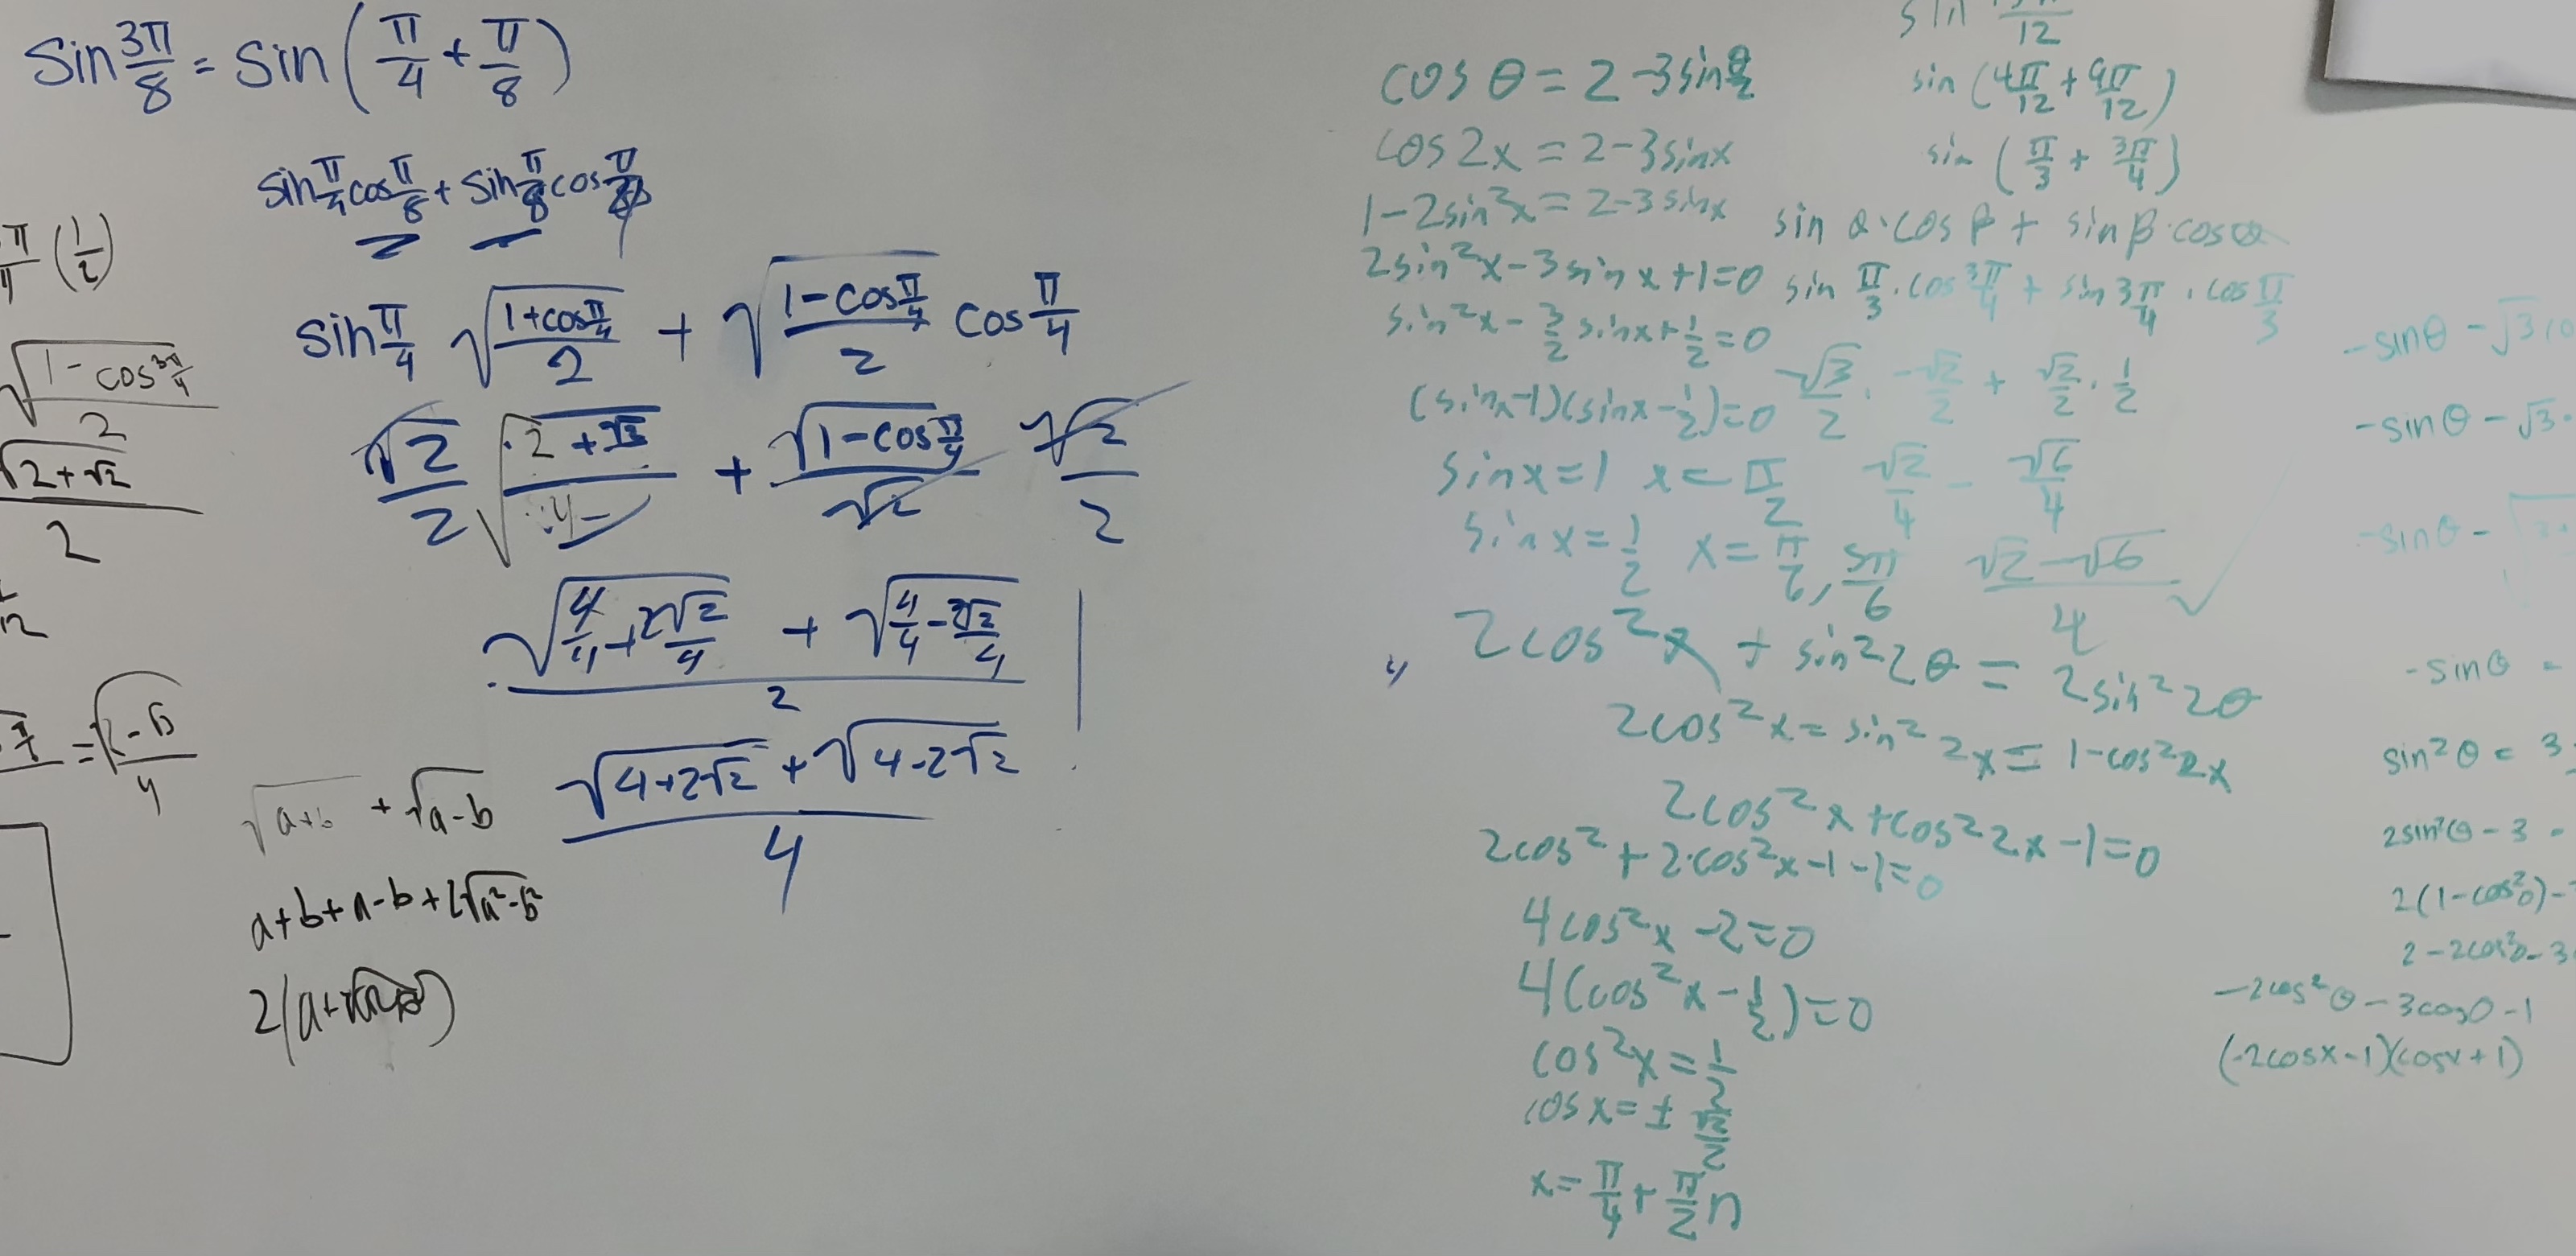 Sin 3π/8 = sin (π/4 + π/8)
sin π/4 cos π/8 + sin π/8 cos π/4
sin π/4 √((1+cos π/4)/2) + √((1-cos π/4)/2) cos π/4
√2/2 √((2+√2)/4) + √(1-cos π/4)/√2 √2/2
(√(4/4+2√2/4) + √(4/4-2√2/4))/2
(√(4+2√2) + √(4-2√2))/4
π (1/2)
√((1-cos 3π/4)/2)
√(2+√2)/2
√(a+b) + √(a-b)
a+b+a-b+2√(a²-b²)
cos θ = 2-3sin θ/2
cos 2x = 2-3sinx
1-2sin²x = 2-3sinx
2sin²x-3sinx+1=0
sin²x - 3/2 sinx + 1/2 = 0
(sinx-1)(sinx-1/2)=0
sinx=1 x=π/2
sinx=1/2 x=π/6, 5π/6
12
sin (4π/12 + 9π/12)
sin (π/3 + 3π/4)
sin α·cos β + sin β·cos α
sin π/3 · cos 3π/4 + sin 3π/4 · cos π/3
√3/2 · -√2/2 + √2/2 · 1/2
√2/4 - √6/4
(√2-√6)/4 ✓
2cos²x + sin²2θ = 2sin²2θ
2cos²x = sin²2x = 1-cos²2x
2cos²x+cos²2x-1=0
2cos²+2·cos²x-1-1=0
4cos²x-2=0
4(cos²x-1/2)=0
cos²x=1/2
cos x=± √2/2
x=π/4+π/2 n
-sinθ-√3
-sinθ-√3
-sinθ-
-sinθ =
sin²θ = 3
2sin²θ-3
2(1-cos²θ)-
2-2cos²θ-3
-2cos²θ-3cosθ-1
(-2cosx-1)(cosx+1)